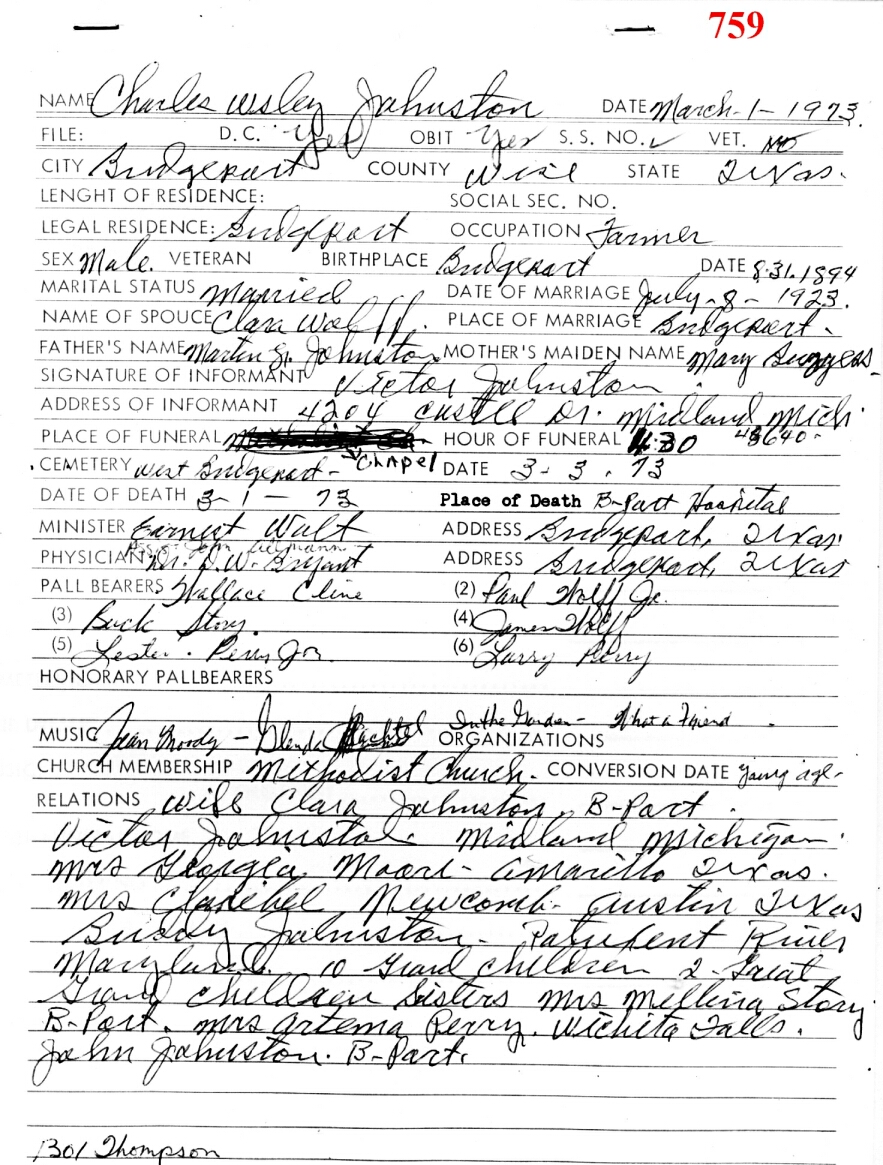 759
NAME Charles Wsley Johnston DATE March-1-1973.
FILE: D.C. Yes OBIT Yes S.S. NO. ✓ VET. NO
CITY Bridgeport COUNTY Wise STATE Texas.
LENGHT OF RESIDENCE: SOCIAL SEC. NO.
LEGAL RESIDENCE: Bridgeport OCCUPATION Farmer
SEX Male. VETERAN BIRTHPLACE Bridgeport DATE 8.31.1894
MARITAL STATUS Married DATE OF MARRIAGE July-8-1923.
NAME OF SPOUSE Clara Wolff. PLACE OF MARRIAGE Bridgeport.
FATHER'S NAME Martin Johnston MOTHER'S MAIDEN NAME Mary Burgess
SIGNATURE OF INFORMANT Victor Johnston
ADDRESS OF INFORMANT 4204 Castle Dr. Midland Mich.
PLACE OF FUNERAL HOUR OF FUNERAL 4:30 48640-
CEMETERY West Bridgeport- Chapel DATE 3-3.73
DATE OF DEATH 3-1-73 Place of Death B-Port Hospital
MINISTER Earnest Walt ADDRESS Bridgeport, Texas
PHYSICIAN Dr. D.W. Bryant ADDRESS Bridgeport, Texas
PALL BEARERS Wallace Cline (2) Paul Wolff Jr.
(3) Buck Story. (4) James Wolff
(5) Lester. Perry Jr. (6) Larry Perry
HONORARY PALLBEARERS
In the Garden- What a Friend.
MUSIC Jean Moody - Glenda ORGANIZATIONS
CHURCH MEMBERSHIP Methodist Church. CONVERSION DATE young age-
RELATIONS Wife Clara Johnston. B-Port.
Victor Johnston. Midland Michigan.
Mrs Georgia Moore- Amarillo Texas.
Mrs Claribel Newcomb- Austin Texas
Buddy Johnston- Patuxent River
Maryland. 10 Grand children 2-Great
Grand Children Sisters Mrs Mellina Story
B-Port. Mrs Artema Perry. Wichita Falls.
John Johnston. B-Port.
1301 Thompson